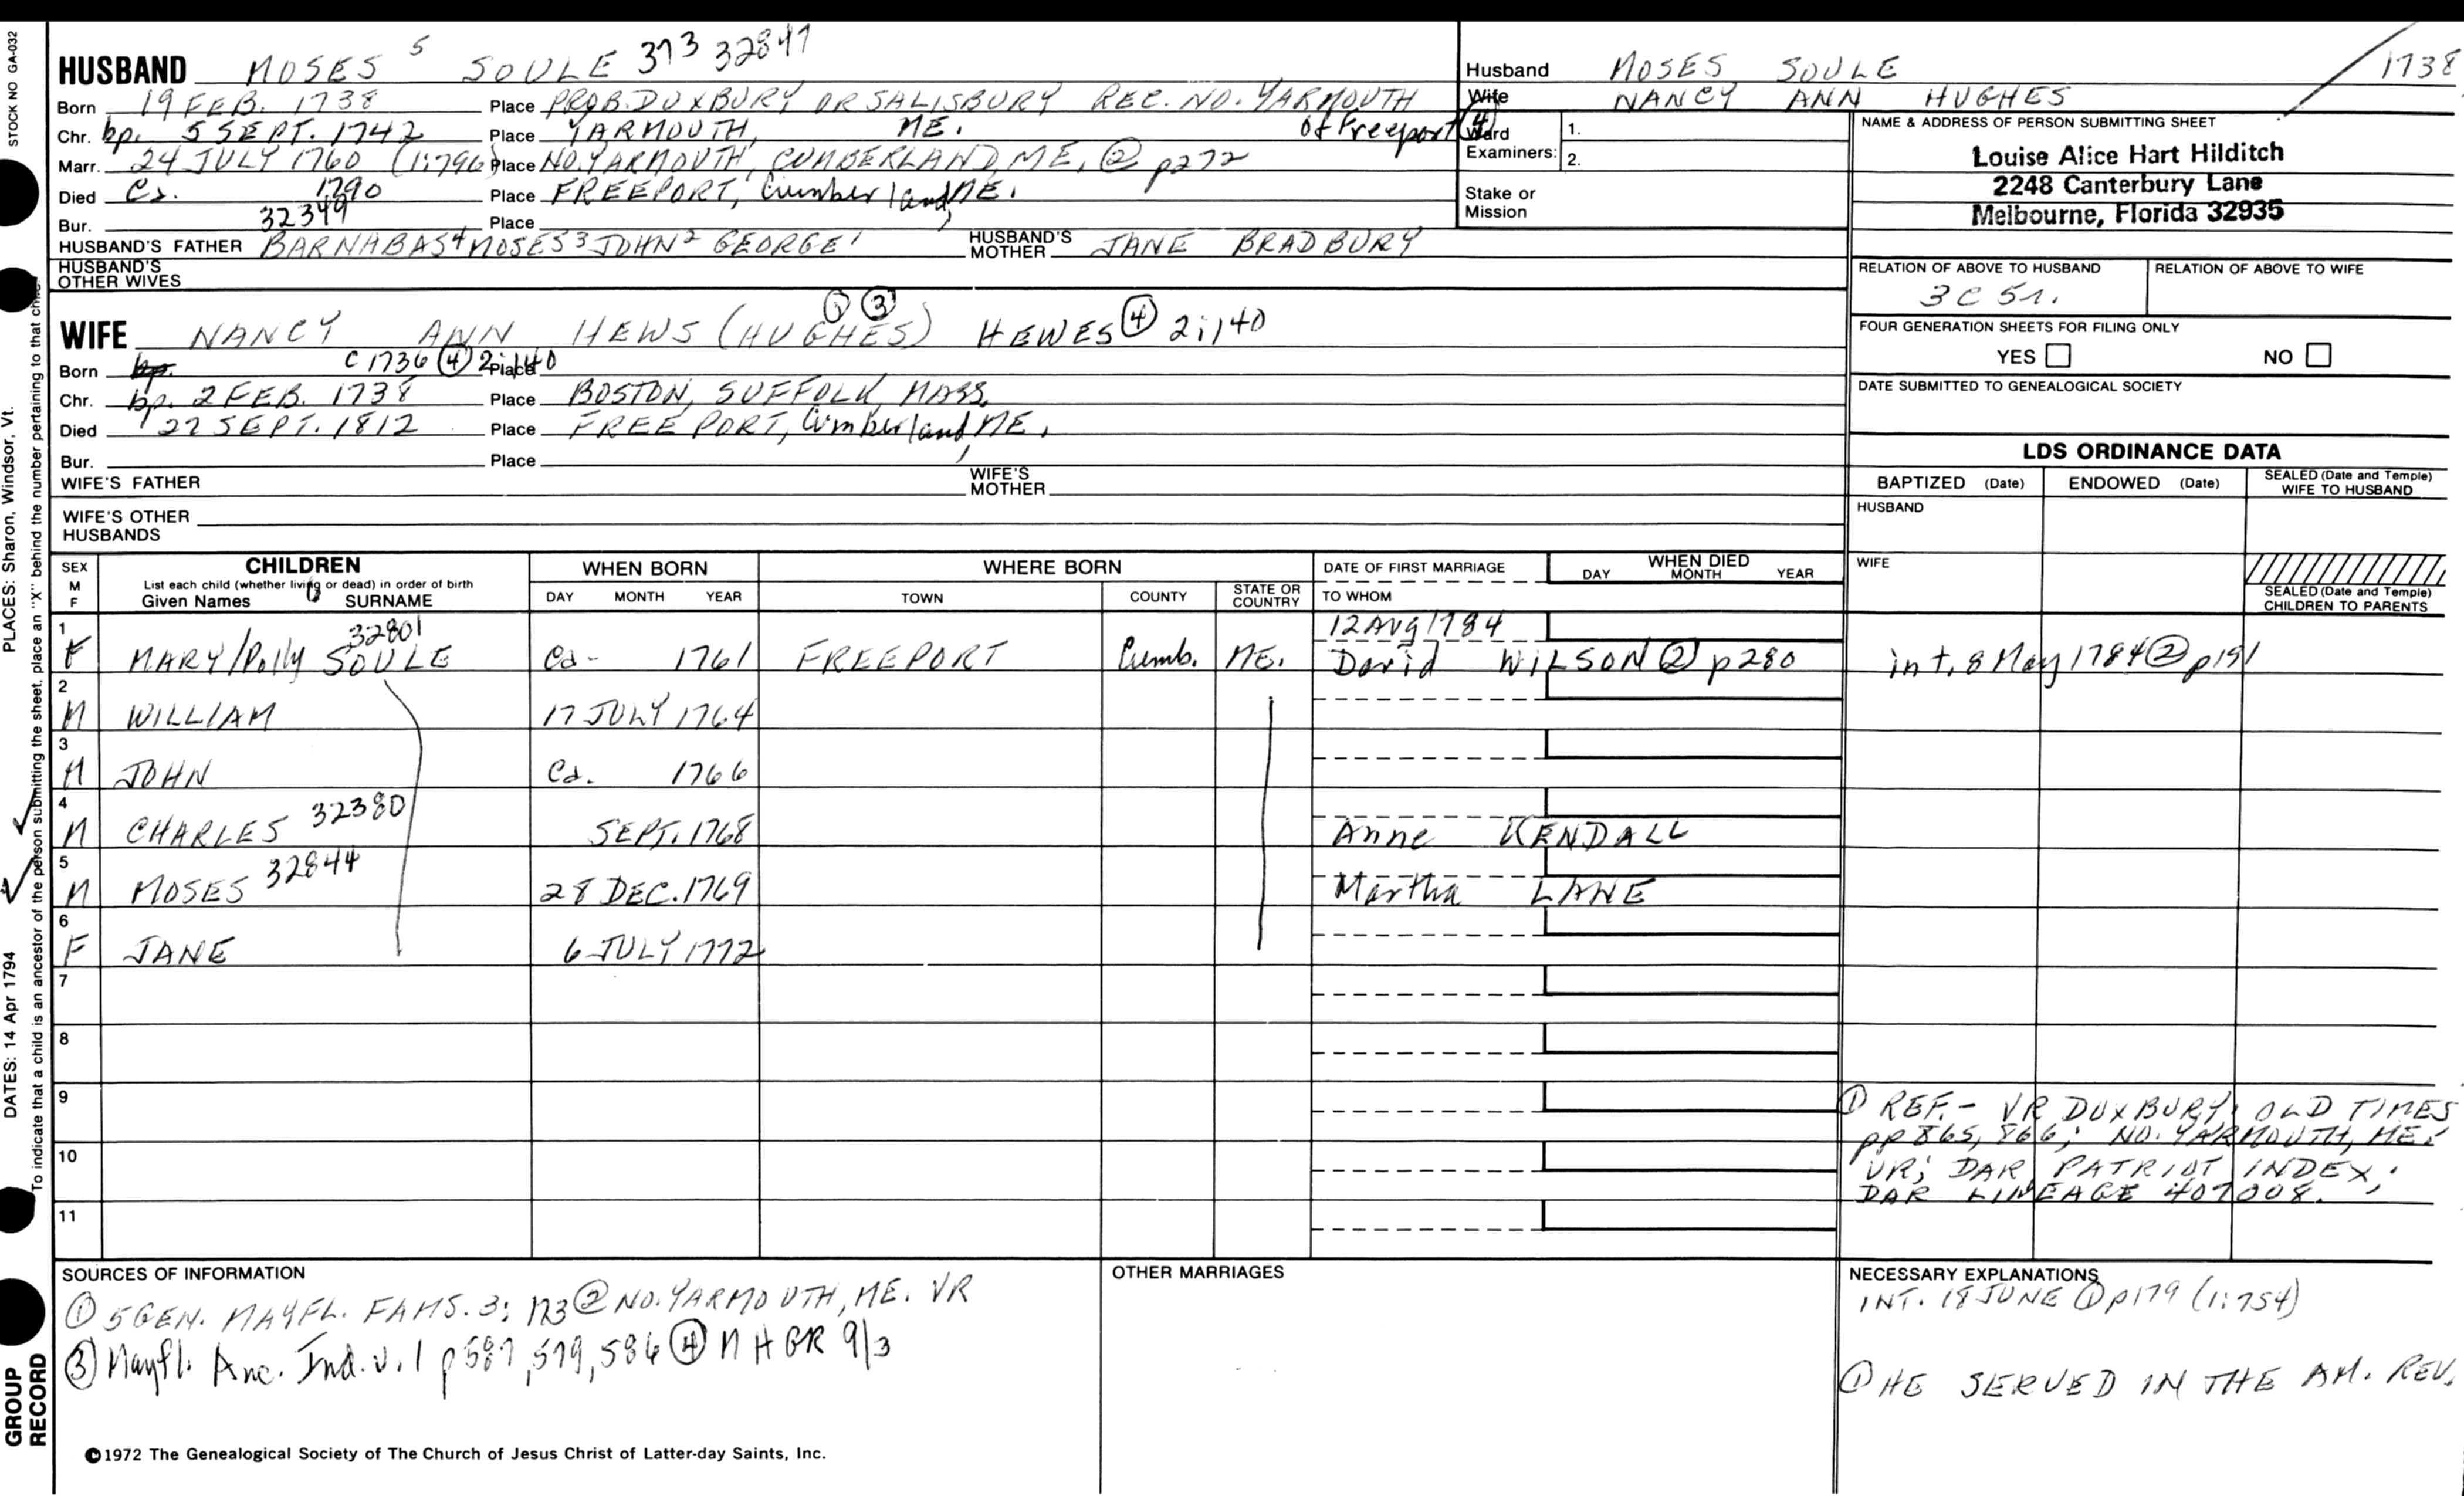 STOCK NO GA-032
HUSBAND MOSES 5 SOULE 373
Born 19 FEB. 1738 Place PROB. DUXBURY OR SALISBURY REC. NO. YARMOUTH
Chr. bp. 5 SEPT. 1742 Place YARMOUTH, ME. of Freeport (4)
Marr. 24 JULY 1760 (1:796) Place NO. YARMOUTH, CUMBERLAND, ME, (2) p272
Died Ca. 1790 Place FREEPORT, Cumberland, ME.
Bur. 32349 Place
HUSBAND'S FATHER BARNABAS 4 MOSES 3 JOHN 2 GEORGE 1 HUSBAND'S MOTHER JANE BRADBURY
HUSBAND'S OTHER WIVES
WIFE NANCY ANN HEWS (HUGHES) (3) HEWES (4) 2:140
Born bp. C 1736 (4) 2:140 Place
Chr. bp. 2 FEB. 1738 Place BOSTON, SUFFOLK, MASS.
Died 22 SEPT. 1812 Place FREEPORT, Cumberland, ME.
Bur. Place
WIFE'S FATHER WIFE'S MOTHER
WIFE'S OTHER HUSBANDS
Husband MOSES SOULE 1738
Wife NANCY ANN HUGHES
Ward Examiners: 1.
2.
Stake or Mission
NAME & ADDRESS OF PERSON SUBMITTING SHEET
Louise Alice Hart Hilditch
2248 Canterbury Lane
Melbourne, Florida 32935
RELATION OF ABOVE TO HUSBAND RELATION OF ABOVE TO WIFE
3 C 5 r.
FOUR GENERATION SHEETS FOR FILING ONLY
YES NO
DATE SUBMITTED TO GENEALOGICAL SOCIETY
LDS ORDINANCE DATA
BAPTIZED (Date) ENDOWED (Date) SEALED (Date and Temple) WIFE TO HUSBAND
HUSBAND
WIFE
SEALED (Date and Temple) CHILDREN TO PARENTS
SEX M F
CHILDREN
List each child (whether living or dead) in order of birth
Given Names SURNAME
WHEN BORN
DAY MONTH YEAR
WHERE BORN
TOWN COUNTY STATE OR COUNTRY
DATE OF FIRST MARRIAGE
TO WHOM
WHEN DIED
DAY MONTH YEAR
1 F MARY/Polly SOULE 32801 Ca- 1761 FREEPORT Cumb. ME. 12 AUG 1784 David WILSON (2) p280 int. 8 May 1784 (2) p191
2 M WILLIAM 17 JULY 1764
3 M JOHN Ca. 1766
4 M CHARLES 32380 SEPT. 1768 Anne KENDALL
5 M MOSES 32844 28 DEC. 1769 Martha LANE
6 F JANE 6 JULY 1772
7
8
9
10
11
(1) REF. - VR DUXBURY; OLD TIMES
pp 865, 866; NO. YARMOUTH, ME.
VR; DAR PATRIOT INDEX;
DAR LINEAGE 407008.
SOURCES OF INFORMATION
(1) 5 GEN. MAYFL. FAMS. 3: 173 (2) NO. YARMOUTH, ME. VR
(3) Mayfl. Anc. Ind. v. 1 p 587, 579, 586 (4) N H GR 9/3
OTHER MARRIAGES
NECESSARY EXPLANATIONS
INT. 18 JUNE (1) p179 (1:754)
(1) HE SERVED IN THE AM. REV.
©1972 The Genealogical Society of The Church of Jesus Christ of Latter-day Saints, Inc.
PLACES: Sharon, Windsor, Vt.
DATES: 14 Apr 1794
To indicate that a child is an ancestor of the person submitting the sheet, place an "X" behind the number pertaining to that child.
GROUP RECORD